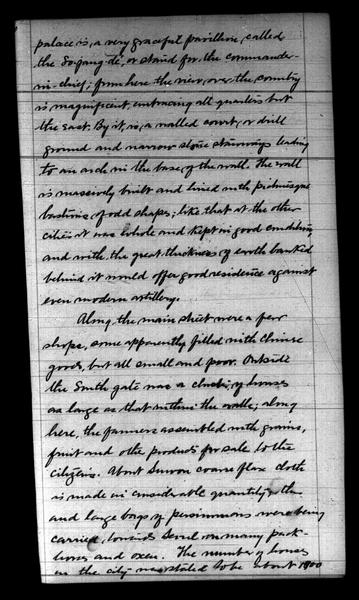 palace is, a very graceful pavillion, called
the So-jang-dè, or stand for the commander-
in-chief; from here the view, over the country
is magnificent, embracing all quarters but
the east. By it, is, a walled court, or drill
ground and narrow stone stairways leading
to an arch in the base, of the wall. The wall
is massively built and lined with picturesque
bastions of odd shapes; like that at the other
cities it was whole and kept in good condition,
and with, the great thickness of earth banked
behind it would offer good resistence against
even modern artillery.
Along, the main street were a few
shops, some apparently filled with Chinese
goods, but all small and poor. Outside
the South gate was a cluster, of houses
as large as that within the walls; along
here, the farmers assembled with grains,
fruit and other products for sale to the
citizens. About Suwon coarse flax cloth
is made in considerable quantity, the
and large bags of persimmons were being
carried, towards Seoul on many pack-
horses and oxen. The number of houses
in the city was stated to be about 1900